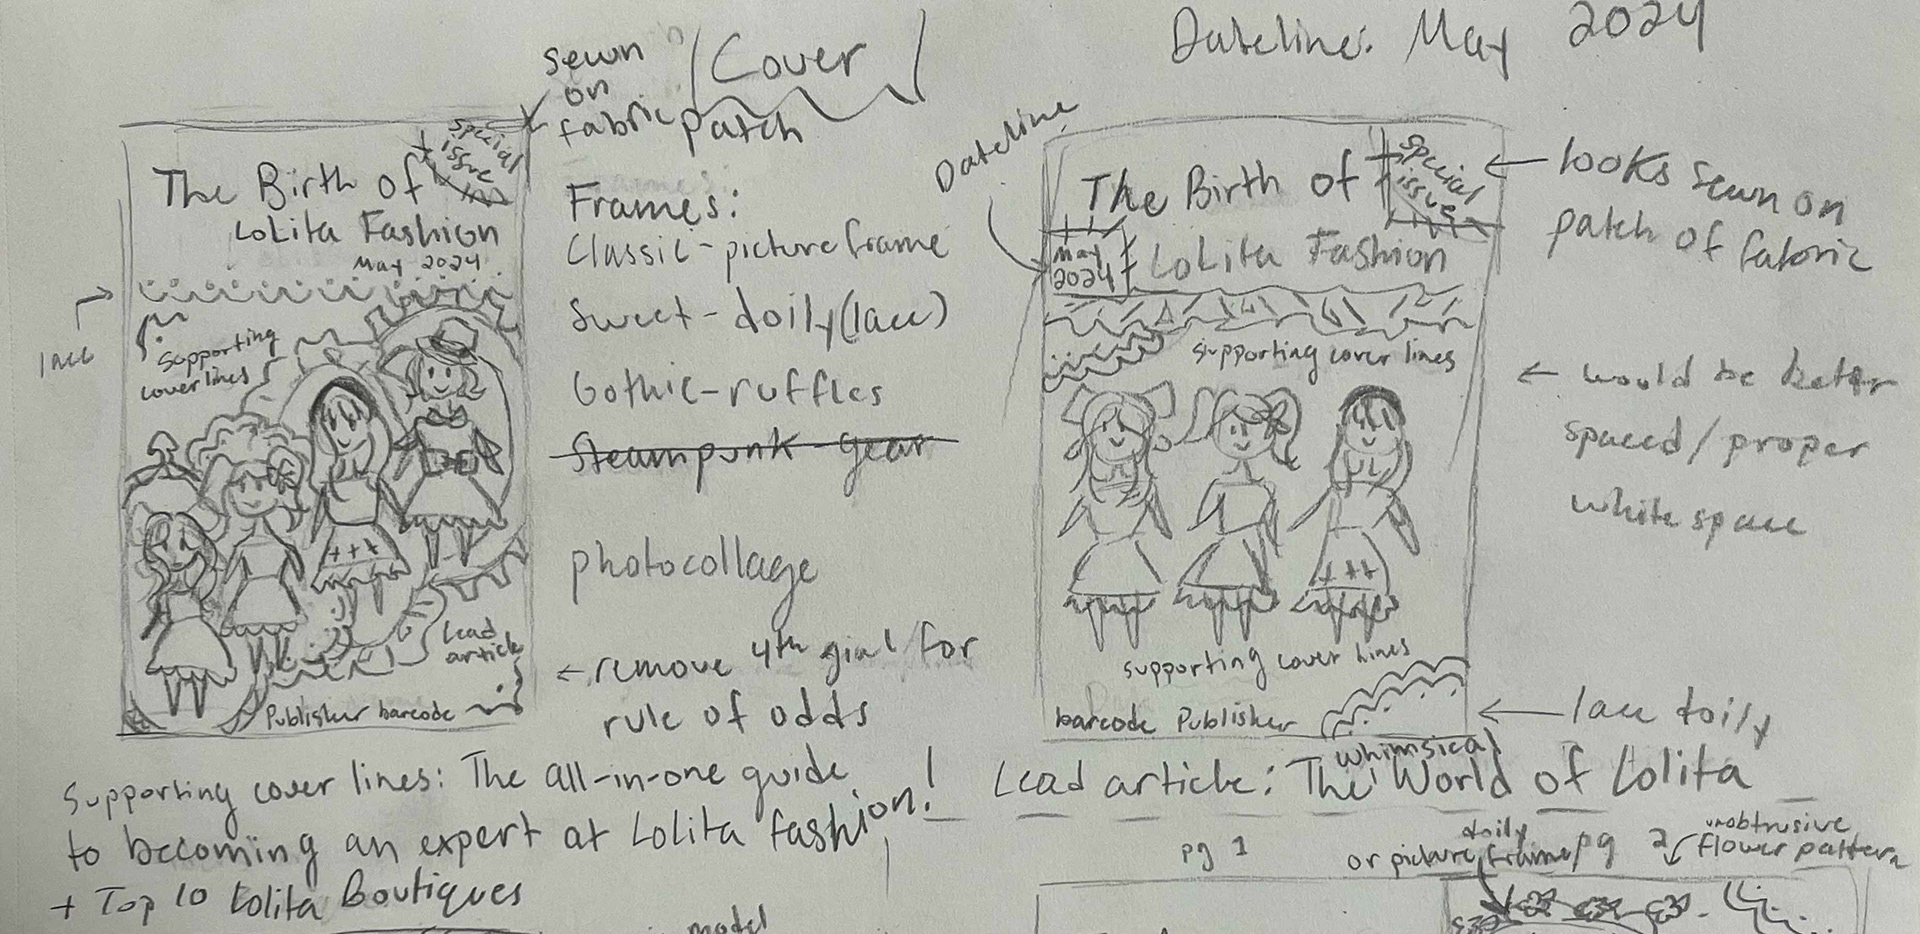 Cover
Dateline: May 2024
sewn
on
fabric patch
special
issue
The Birth of
Lolita Fashion
May 2024
lace
Supporting
cover lines
Lead
article
Publisher barcode
Frames:
Classic - picture frame
Sweet - doily (lace)
Gothic - ruffles
Steampunk - gear
photocollage
← remove 4th girl for
rule of odds
Dateline
The Birth of
special
issue
May
2024
Lolita Fashion
supporting cover lines
supporting cover lines
barcode Publisher
← looks sewn on
patch of fabric
← would be better
spaced / proper
white space
← lace doily
Supporting cover lines: The all-in-one guide
to becoming an expert at Lolita fashion!
+ Top 10 Lolita Boutiques
whimsical
Lead article: The World of Lolita
pg 1
doily
or picture frame
pg 2
unobtrusive
flower pattern
model